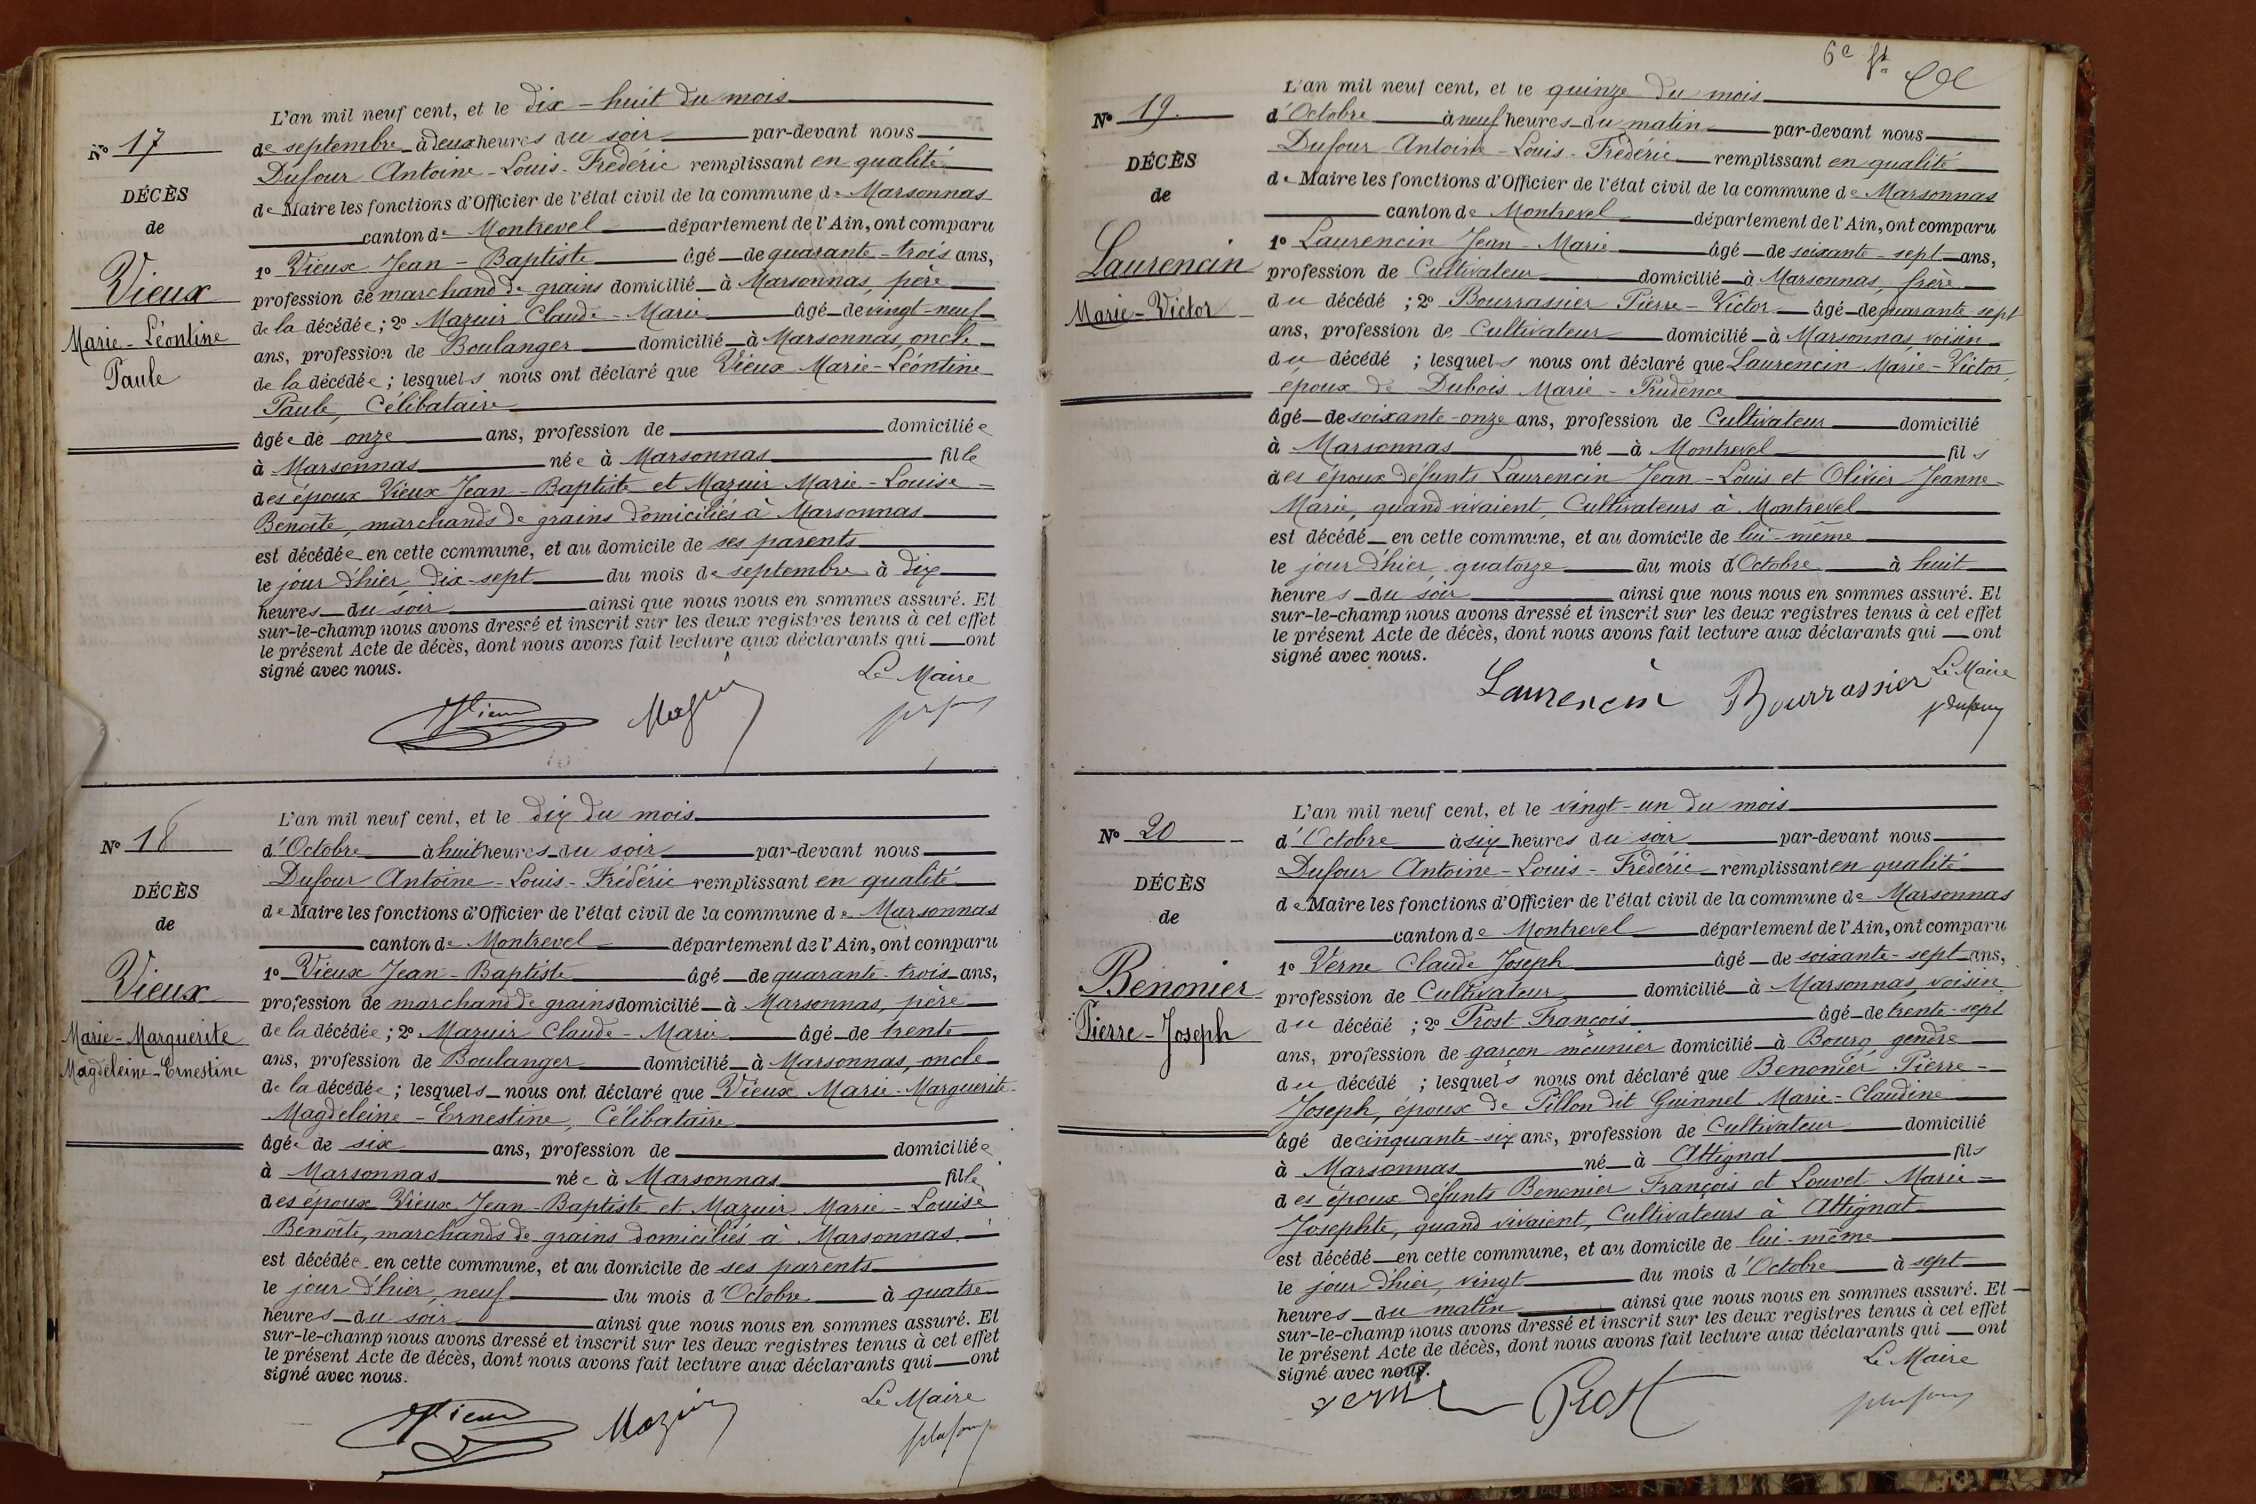 L'an mil neuf cent, et le dix-huit du mois
No 17
de septembre à deux heures du soir par-devant nous
Dufour Antoine-Louis-Frédéric remplissant en qualité
DÉCÈS
de Maire les fonctions d'Officier de l'état civil de la commune de Marsonnas
de
canton de Montrevel département de l'Ain, ont comparu
1o Vieux Jean-Baptiste âgé de quarante-trois ans,
Vieux
profession de marchand de grains domicilié à Marsonnas, père
de la décédée; 2o Mazuir Claude-Marie âgé de vingt-neuf
Marie-Léontine
ans, profession de Boulanger domicilié à Marsonnas, oncle
Paule
de la décédée; lesquels nous ont déclaré que Vieux Marie-Léontine
Paule, Célibataire
âgée de onze ans, profession de domiciliée
à Marsonnas née à Marsonnas fille
des époux Vieux Jean-Baptiste et Mazuir Marie-Louise-
Benoîte, marchands de grains domiciliés à Marsonnas
est décédée en cette commune, et au domicile de ses parents
le jour d'hier, dix-sept du mois de septembre à dix
heures du soir ainsi que nous nous en sommes assuré. Et
sur-le-champ nous avons dressé et inscrit sur les deux registres tenus à cet effet
le présent Acte de décès, dont nous avons fait lecture aux déclarants qui ont
signé avec nous.
Le Maire
Vieux Mazuir
L'an mil neuf cent, et le dix du mois
No 18
d'Octobre à huit heures du soir par-devant nous
Dufour Antoine-Louis-Frédéric remplissant en qualité
DÉCÈS
de Maire les fonctions d'Officier de l'état civil de la commune de Marsonnas
de
canton de Montrevel département de l'Ain, ont comparu
1o Vieux Jean-Baptiste âgé de quarante-trois ans,
Vieux
profession de marchand de grains domicilié à Marsonnas, père
Marie-Marguerite
de la décédée; 2o Mazuir Claude-Marie âgé de trente
Magdeleine-Ernestine
ans, profession de Boulanger domicilié à Marsonnas, oncle
de la décédée; lesquels nous ont déclaré que Vieux Marie-Marguerite-
Magdeleine-Ernestine, Célibataire
âgée de six ans, profession de domiciliée
à Marsonnas née à Marsonnas fille
des époux Vieux Jean-Baptiste et Mazuir Marie-Louise
Benoîte, marchands de grains domiciliés à Marsonnas.
est décédée en cette commune, et au domicile de ses parents
le jour d'hier, neuf du mois d'Octobre à quatre
heures du soir ainsi que nous nous en sommes assuré. Et
sur-le-champ nous avons dressé et inscrit sur les deux registres tenus à cet effet
le présent Acte de décès, dont nous avons fait lecture aux déclarants qui ont
signé avec nous.
Le Maire
Vieux Mazuir
6e ft
L'an mil neuf cent, et le quinze du mois
No 19.
d'Octobre à neuf heures du matin par-devant nous
Dufour Antoine-Louis-Frédéric remplissant en qualité
DÉCÈS
de Maire les fonctions d'Officier de l'état civil de la commune de Marsonnas
de
canton de Montrevel département de l'Ain, ont comparu
1o Laurencin Jean-Marie âgé de soixante-sept ans,
Laurencin
profession de Cultivateur domicilié à Marsonnas, frère
Marie-Victor
du décédé; 2o Bourrassier Pierre-Victor âgé de quarante-sept
ans, profession de Cultivateur domicilié à Marsonnas, voisin
du décédé; lesquels nous ont déclaré que Laurencin Marie-Victor,
époux de Dubois Marie-Prudence
âgé de soixante-onze ans, profession de Cultivateur domicilié
à Marsonnas né à Montrevel fils
des époux défunts Laurencin Jean-Louis et Olivier Jeanne-
Marie, quand vivaient, Cultivateurs à Montrevel
est décédé en cette commune, et au domicile de lui-même
le jour d'hier, quatorze du mois d'Octobre à huit
heures du soir ainsi que nous nous en sommes assuré. Et
sur-le-champ nous avons dressé et inscrit sur les deux registres tenus à cet effet
le présent Acte de décès, dont nous avons fait lecture aux déclarants qui ont
signé avec nous.
Le Maire
Laurencin Bourrassier Dufour
L'an mil neuf cent, et le vingt-un du mois
No 20
d'Octobre à six heures du soir par-devant nous
Dufour Antoine-Louis-Frédéric remplissant en qualité
DÉCÈS
de Maire les fonctions d'Officier de l'état civil de la commune de Marsonnas
de
canton de Montrevel département de l'Ain, ont comparu
1o Verne Claude Joseph âgé de soixante-sept ans,
Benonier
profession de Cultivateur domicilié à Marsonnas, voisin
Pierre-Joseph
du décédé; 2o Prost François âgé de trente-sept
ans, profession de garçon meunier domicilié à Bourg, gendre
du décédé; lesquels nous ont déclaré que Benonier Pierre-
Joseph, époux de Pillon dit Guinnel Marie-Claudine
âgé de cinquante-six ans, profession de Cultivateur domicilié
à Marsonnas né à Attignat fils
des époux défunts Benonier François et Louvet Marie-
Josephte, quand vivaient, Cultivateurs à Attignat
est décédé en cette commune, et au domicile de lui-même
le jour d'hier, vingt du mois d'Octobre à sept
heures du matin ainsi que nous nous en sommes assuré. Et
sur-le-champ nous avons dressé et inscrit sur les deux registres tenus à cet effet
le présent Acte de décès, dont nous avons fait lecture aux déclarants qui ont
signé avec nous.
Le Maire
Verne Prost